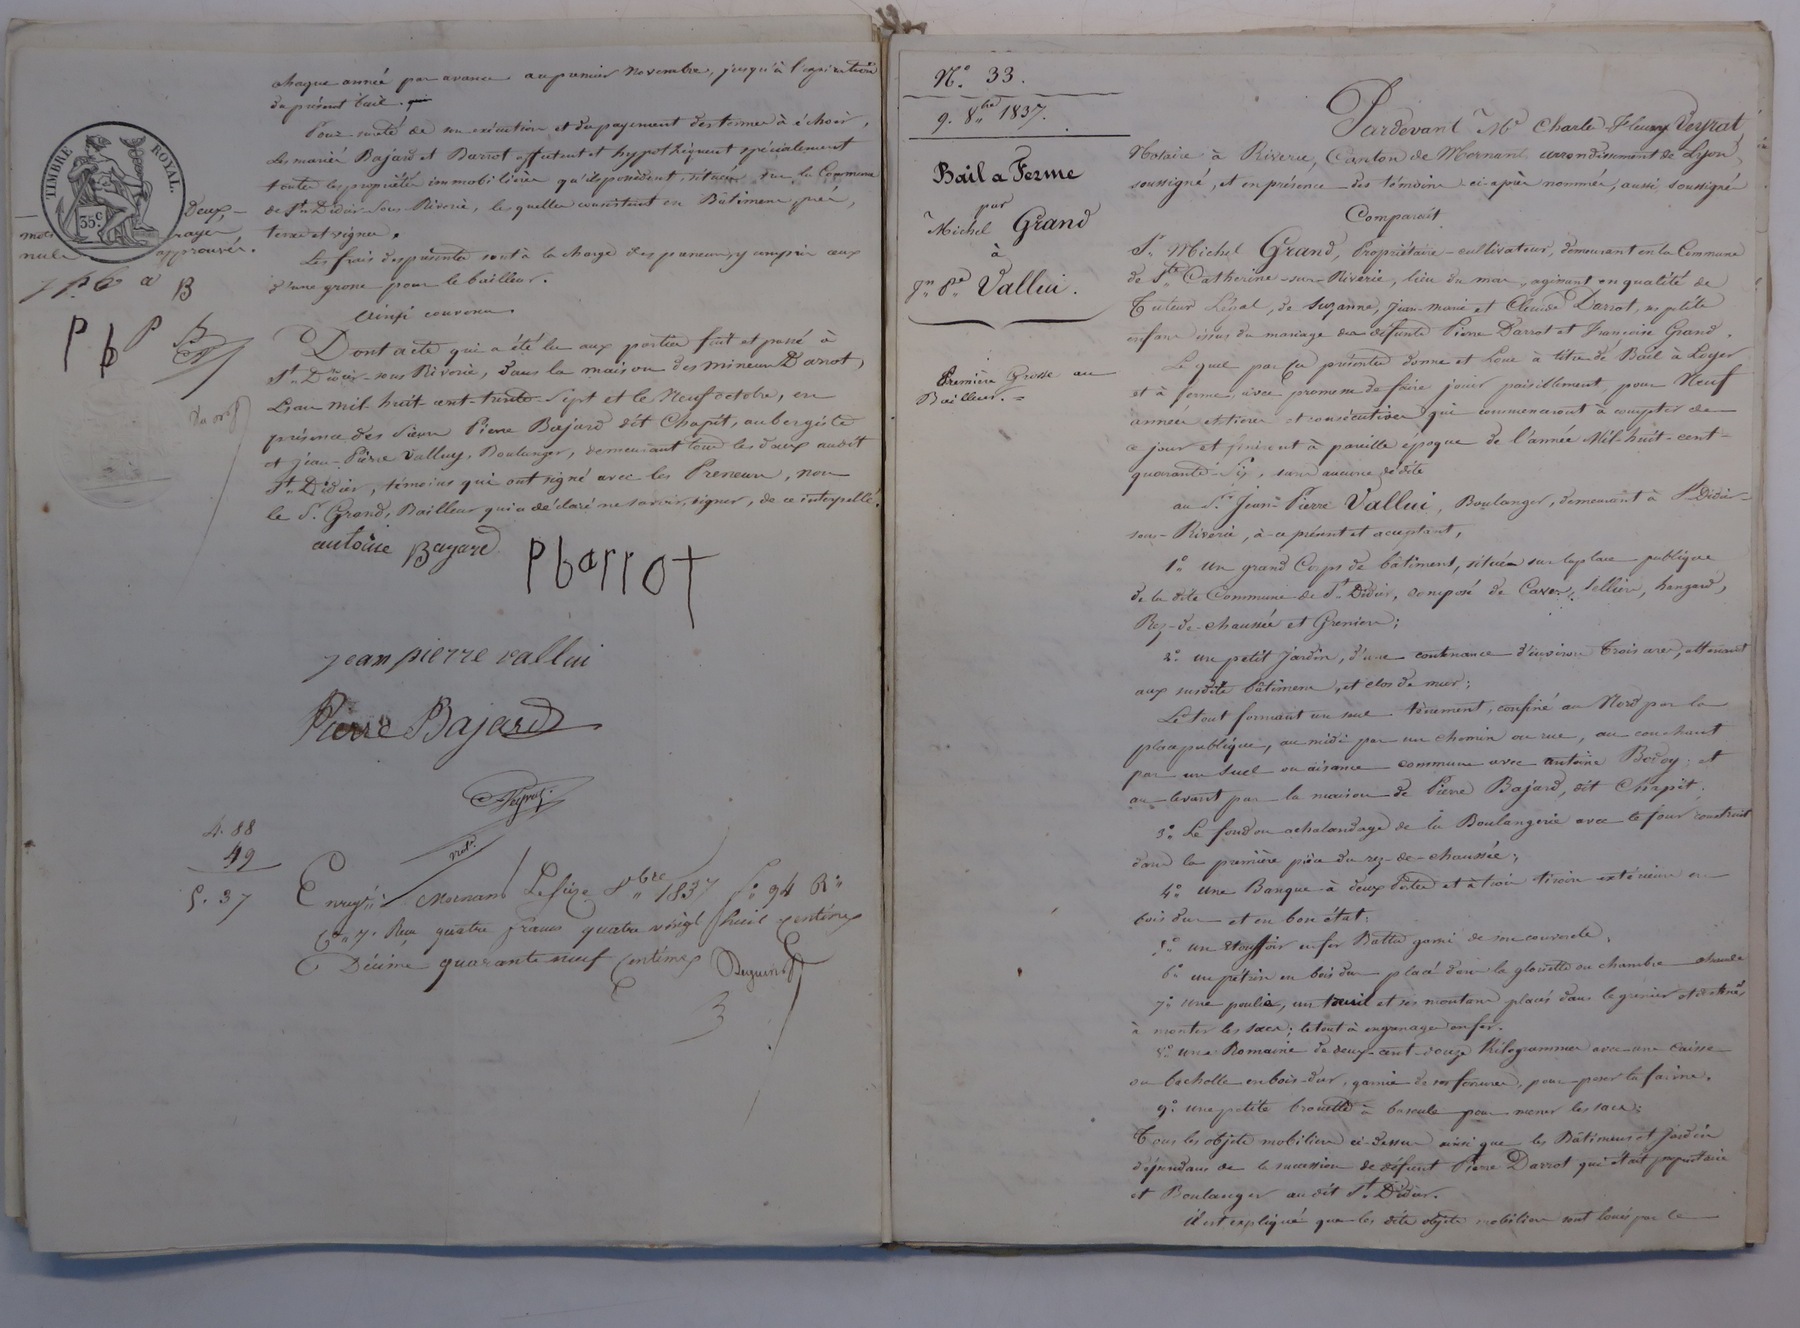 chaque année par avance au premier Novembre, jusqu'à l'expiration
du présent bail.
Pour sureté de son exécution et du payement des termes à échoir,
Les mariés Bajard et Darrot affectent et hypothèquent spécialement
toutes les propriétés immobilières qu'ils possèdent, situées sur la Commune
de St. Didier-sous-Riverie, lesquelles consistent en Bâtimens, prés,
terres et vignes.
Les frais des présentes sont à la charge des preneurs, y compris ceux
d'une grosse pour le bailleur.
Ainsi convenu.
Dont acte qui a été lu aux parties fait et passé à
St. Didier-sous Riverie, dans la maison des mineurs Darrot,
L'an mil-huit-cent-trente-Sept et le Neuf octobre, en
présence des sieurs Pierre Bajard dit Chapit, aubergiste
et Jean-Pierre Valluy, Boulanger, demeurant tous les deux audit
St. Didier, témoins qui ont signé avec les Preneurs, non
le Sr. Grand, Bailleur qui a déclaré ne savoir signer, de ce interpellé.
TIMBRE ROYAL.
35c
Deux
mots rayés
nuls approuvés.
P b
antoine Bayard
pbarrot
jean pierre vallui
Pierre Bajard
Not.
4. 88
49
5. 37
Enregté. à Mornant Le Seize 8bre 1837 fo. 94 Ro.
Ce. 7. Reçu quatre francs quatre vingt huit centimes
Décime quarante neuf centimes
No. 33.
9. 8bre 1837.
Bail a Ferme
par
Michel Grand
à
Jn. Pre. Vallui.
Première Grosse au
Bailleur.
Pardevant Me. Charles Fleury Veyrat,
Notaire à Riverie, Canton de Mornant arrondissement de Lyon,
soussigné, et en présence des témoins ci-après nommés, aussi soussignés
Comparait
Sr. Michel Grand, Propriétaire-cultivateur, demeurant en la Commune
de Ste. Catherine-sur-Riverie, lieu du mas, agissant en qualité de
Tuteur Légal, de Suzanne, Jean-Marie et Claude Darrot, petits
enfans issus du mariage des défunts Pierre Darrot et Françoise Grand.
Lequel par ces présentes donne et Loue à titre de Bail à Loyer
et à ferme, avec promesse de faire jouir paisiblement, pour Neuf
années entières et consécutives qui commenceront à compter de
ce jour et finiront à pareille époque de l'année Mil-huit-cent-
quarante-Six, sans aucune dédite
au Sr. Jean-Pierre Vallui, Boulanger, demeurant à St. Didier-
sous-Riverie, à ce présent et acceptant,
1o. un grand Corps de bâtiment, située sur la place publique
de la dite Commune de St. Didier, composé de Caves, Sellier, hangard,
Rez-de-chaussée et Greniers;
2o. un petit Jardin, d'une contenance d'environ Trois ares, attenant
aux susdits bâtimens, et clos de murs;
Le tout formant un seul tènement, confiné au Nord par la
place publique, au midi par un chemin ou rue, au couchant
par un Suel ou aisance commune avec antoine Bodoy; et
au levant par la maison de Pierre Bajard, dit Chapit;
3o. Le fond ou achalandage de la Boulangerie avec le four construit
dans la première pièce du rez-de-chaussée;
4o. une Banque à deux faces et à trois tiroirs extérieurs en
bois dur et en bon état;
5o. un étouffoir en fer Battu garni de son couvercle;
6o. un pétrin en bois dur placé dans la gloriette ou chambre chaude
7o. une poulie, un treuil et ses montans placés dans le grenier et destinés
à monter les sacs; le tout à engrenages en fer.
8o. une Romaine de deux-cent-douze Kilogrammes avec une Caisse
ou bacholle en bois dur, garnie de ses ferrures, pour peser la farine.
9o. une petite brouette à bascule pour mener les sacs;
Tous les objets mobiliers ci-dessus ainsi que les Bâtimens et Jardin
dépendans de la succession de défunt Pierre Darrot qui était propriétaire
et Boulanger au dit St. Didier.
il est expliqué que les dits objets mobiliers sont loués par le